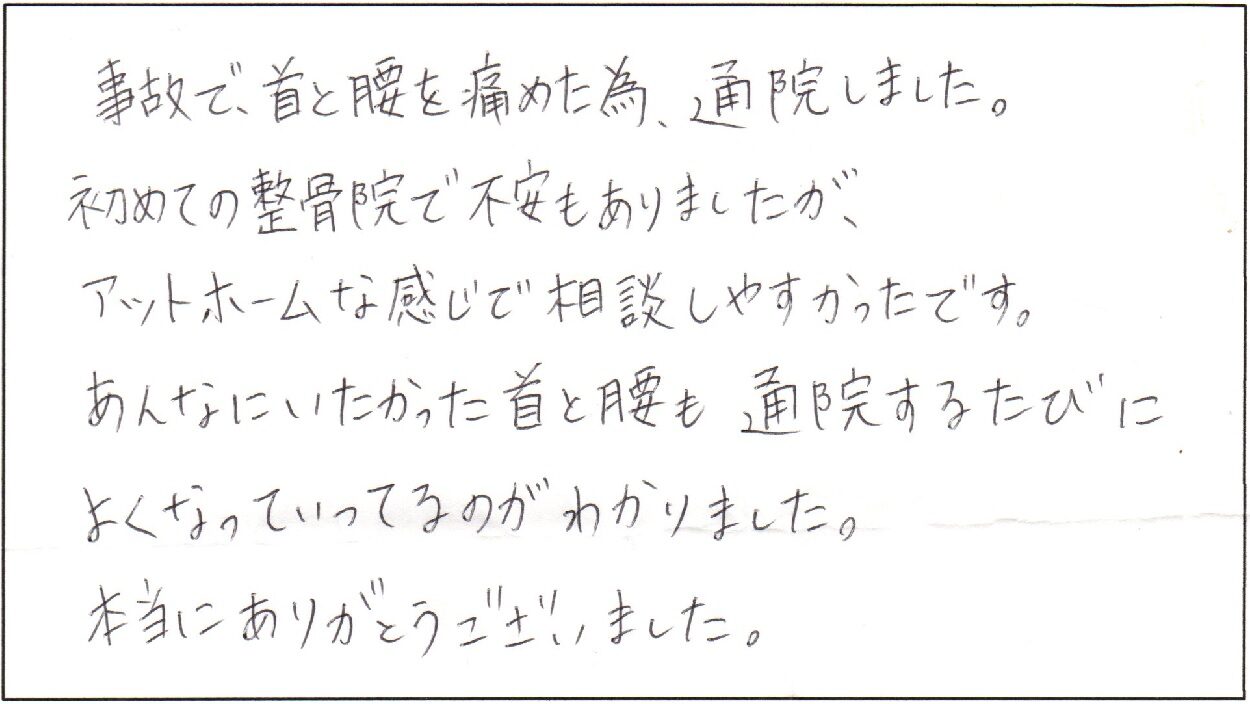 事故で、首と腰を痛めた為、通院しました。
初めての整骨院で不安もありましたが、
アットホームな感じで相談しやすかったです。
あんなにいたかった首と腰も通院するたびに
よくなっていってるのがわかりました。
本当にありがとうございました。